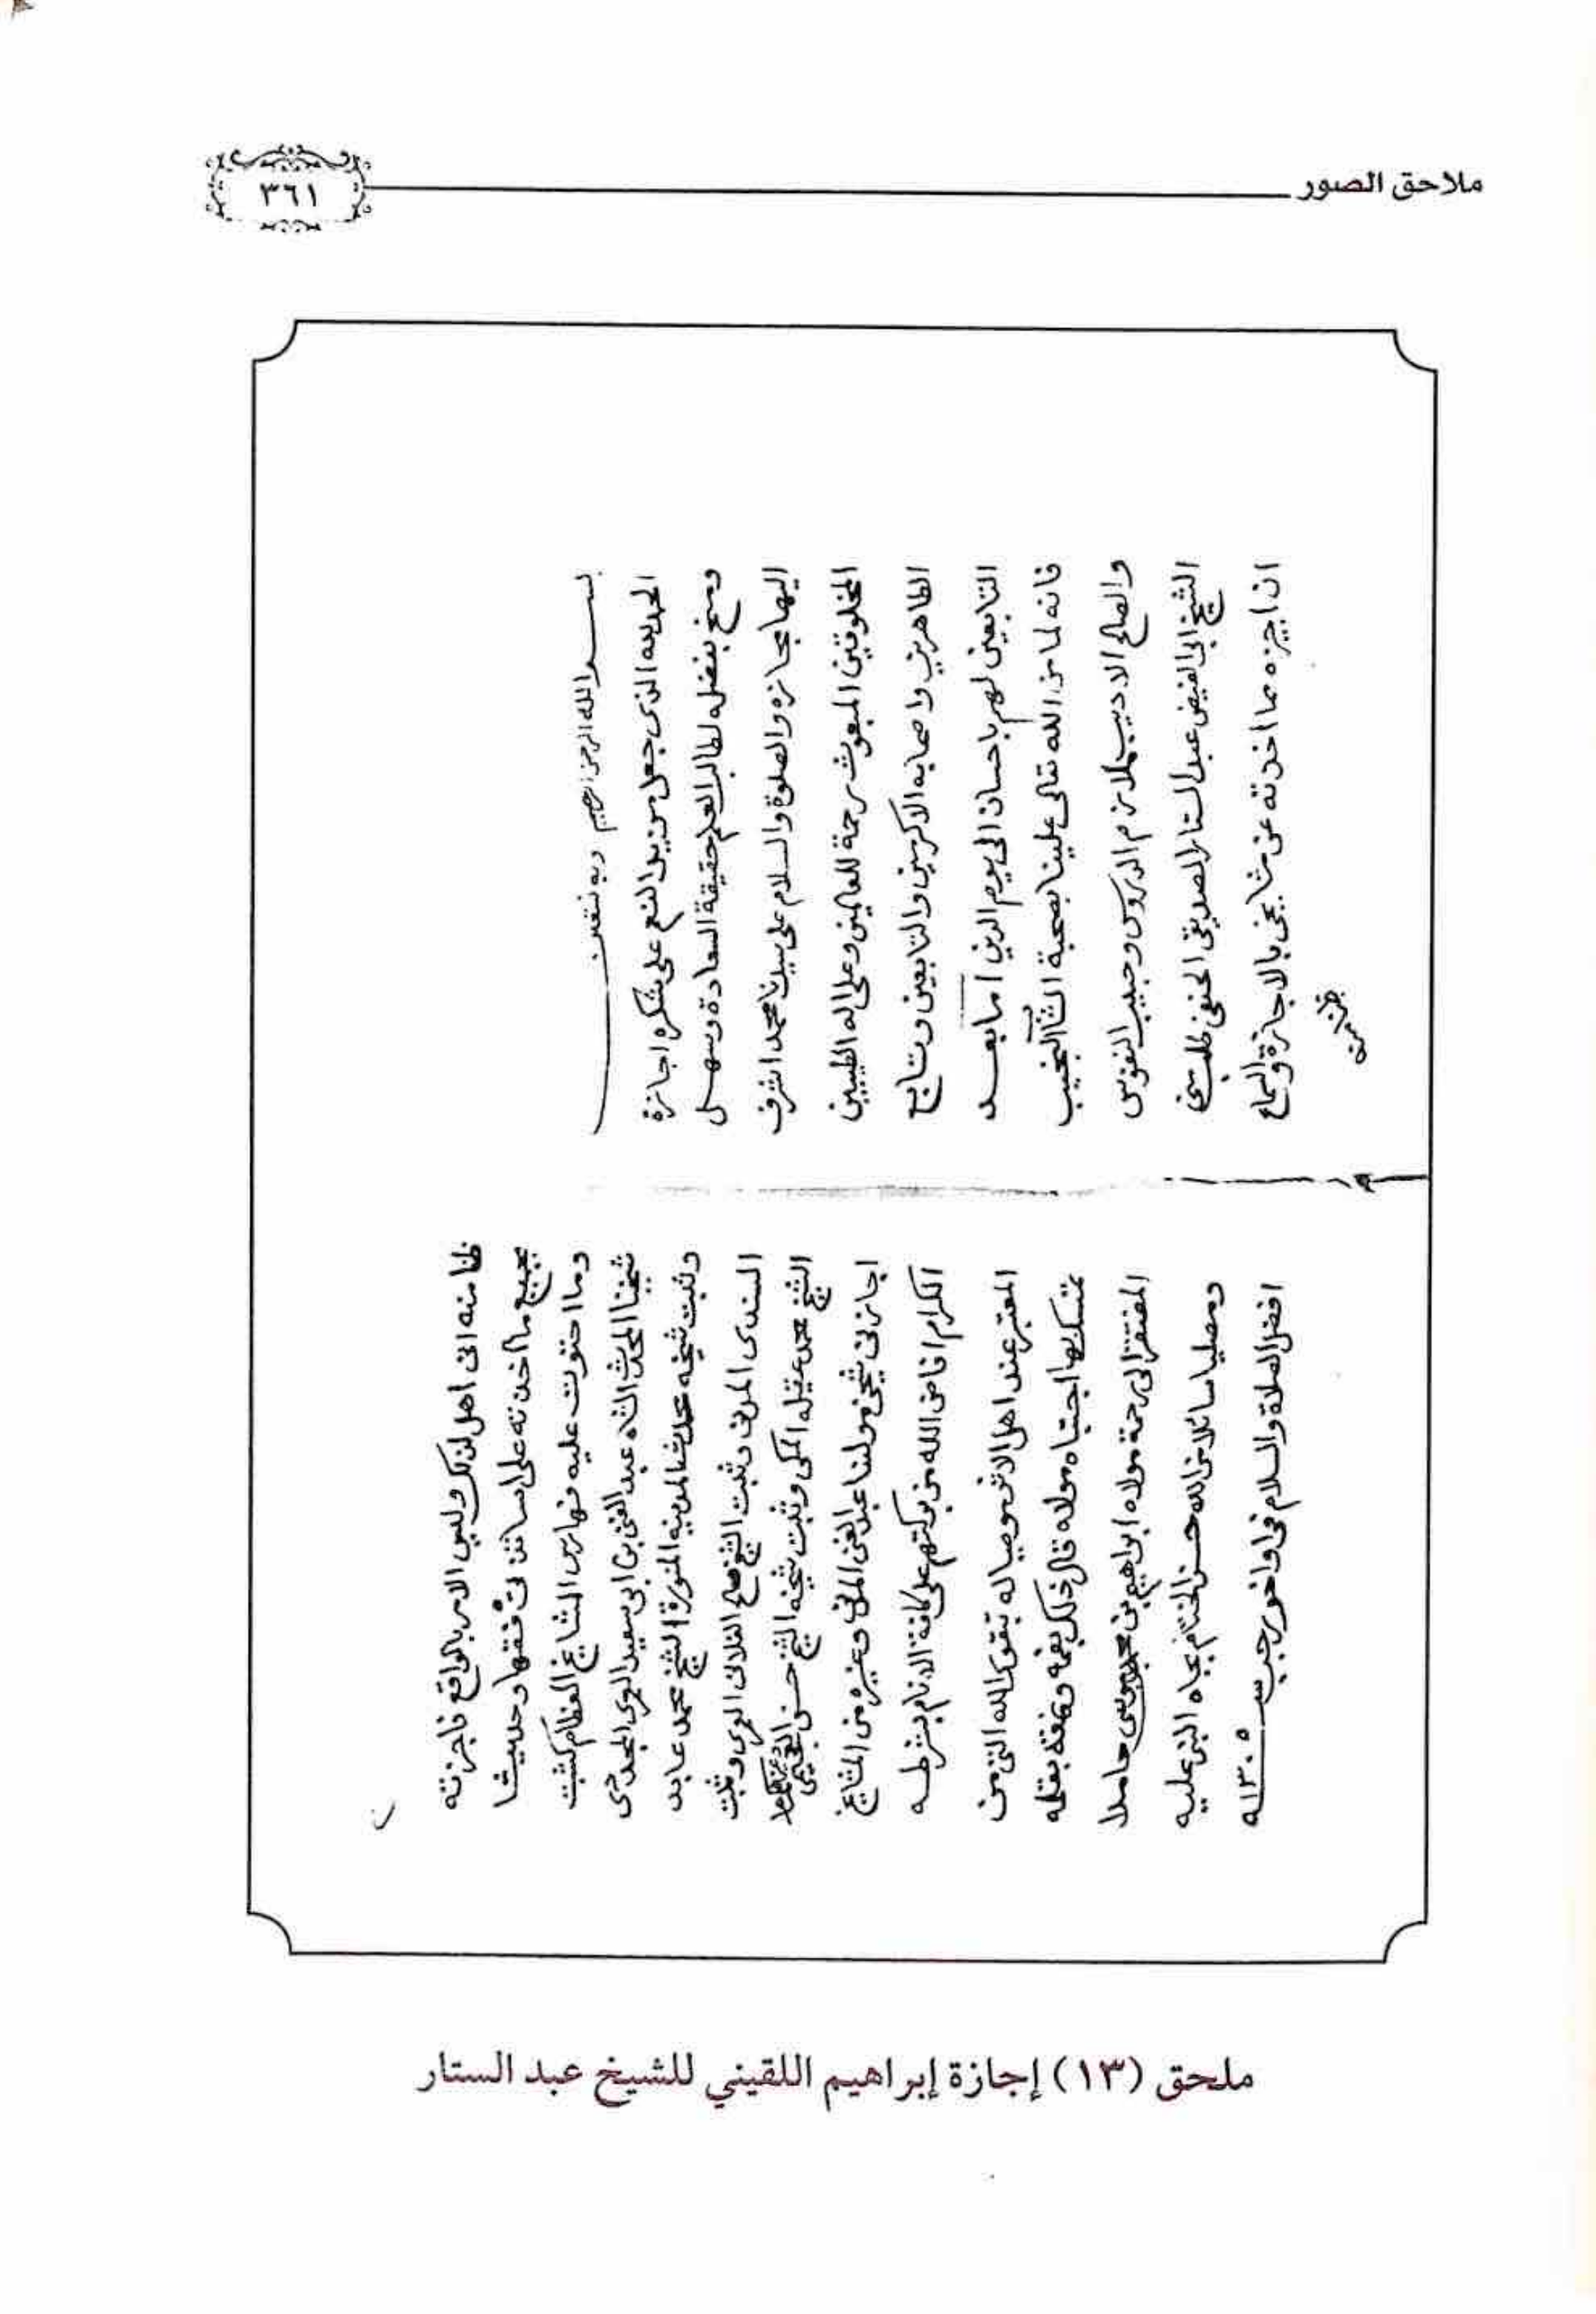 ملاحق الصور
٣٦١
بسم الله الرحمن الرحيم وبه نستعين
الحمد لله الذى جعل مزيد النعم على شكره اجازة
ومنح بفضله لطالب العلم حقيقة السعادة وسهل
اليها مجازه والصلوة والسلام على سيدنا محمد اشرف
المخلوقين المبعوث رحمة للعالمين وعلى اله الطيبين
الطاهرين واصحابه الاكرمين والتابعين وتابع
التابعين لهم باحسان الى يوم الدين اما بعد
فانه لما من الله تعالى علينا بصحبة الشاب النجيب
والصالح الاديب ملازم الدروس وحبيب النفوس
الشيخ ابى الفيض عبد الستار الصديقى الحنفى طلب منى
ان اجيزه مما اخذته عن مشايخى بالاجازة والسماع
ظنا منه
ظنا منه انى اهل لذلك وليس الامر بالواقع فاجزته
بجميع ما اخذته على اساتذتى فقها وحديثا
وما احتوت عليه فهارس المشايخ العظام كثبت
شيخنا المحدث الشاه عبد الغنى بن ابى سعيد العمرى المجددى
وثبت شيخه محدث المدينه المنورة الشيخ محمد عابد
السندى المدنى وثبت الشيخ صالح الفلانى العمرى وثبت
الشيخ محمد عقيله المكى وثبت شيخه الشيخ حسن العجيمى
اجازنى شيخى مولنا عبد الغنى المدنى وغيره من المشايخ
الكرام افاض الله من بركتهم على كافة الانام بشرطه
المعتبر عند اهل الاثر موصيا له بتقوى الله التى من
تمسك بها اجتباه مولاه قال ذلك بفمه ونمقه بقلمه
المفتقر الى رحمة مولاه ابراهيم بن محمد موسى حامدا
ومصليا سائلا من الله حسن الختام بجاه النبى عليه
افضل الصلاة والسلام فى اواخر رجب سنة ١٣٠٥ه
ملحق (١٣) إجازة إبراهيم اللقيني للشيخ عبد الستار